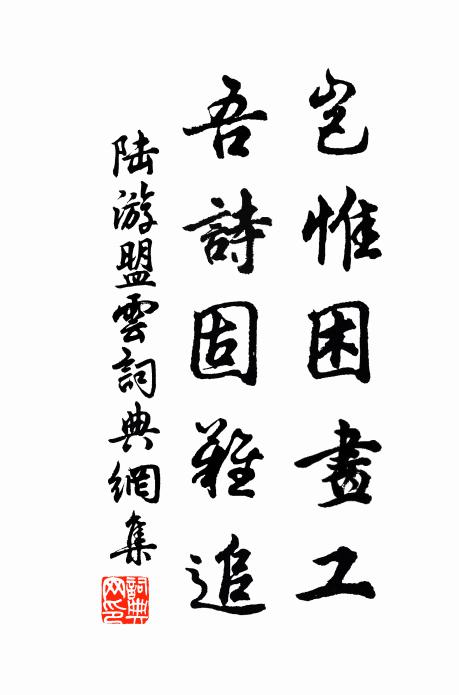 岂惟困畫工
吾詩固難追
陆游盟雲詞典網集
詞典